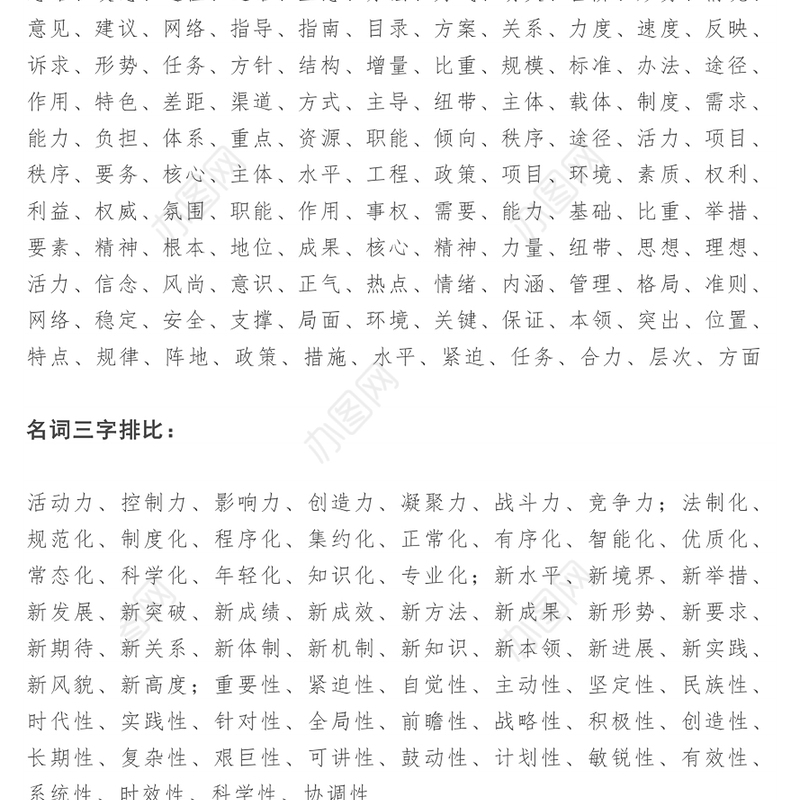 意见、建议、网络、指导、指南、目录、方案、关系、力度、速度、反映、
诉求、形势、任务、方针、结构、增量、比重、规模、标准、办法、途径、
作用、特色、差距、渠道、方式、主导、纽带、主体、载体、制度、需求、
能力、负担、体系、重点、资源、职能、倾向、秩序、途径、活力、项目、
秩序、要务、核心、主体、水平、工程、政策、项目、环境、素质、权利、
利益、权威、氛围、职能、作用、事权、需要、能力、基础、比重、举措、
要素、精神、根本、地位、成果、核心、精神、力量、纽带、思想、理想、
活力、信念、风尚、意识、正气、热点、情绪、内涵、管理、格局、准则、
网络、稳定、安全、支撑、局面、环境、关键、保证、本领、突出、位置、
特点、规律、阵地、政策、措施、水平、紧迫、任务、合力、层次、方面
名词三字排比：
活动力、控制力、影响力、创造力、凝聚力、战斗力、竞争力；法制化、
规范化、制度化、程序化、集约化、正常化、有序化、智能化、优质化、
常态化、科学化、年轻化、知识化、专业化；新水平、新境界、新举措、
新发展、新突破、新成绩、新成效、新方法、新成果、新形势、新要求、
新期待、新关系、新体制、新机制、新知识、新本领、新进展、新实践、
新风貌、新高度；重要性、紧迫性、自觉性、主动性、坚定性、民族性、
时代性、实践性、针对性、全局性、前瞻性、战略性、积极性、创造性、
长期性、复杂性、艰巨性、可讲性、鼓动性、计划性、敏锐性、有效性、
系统性、时效性、科学性、协调性
办图网